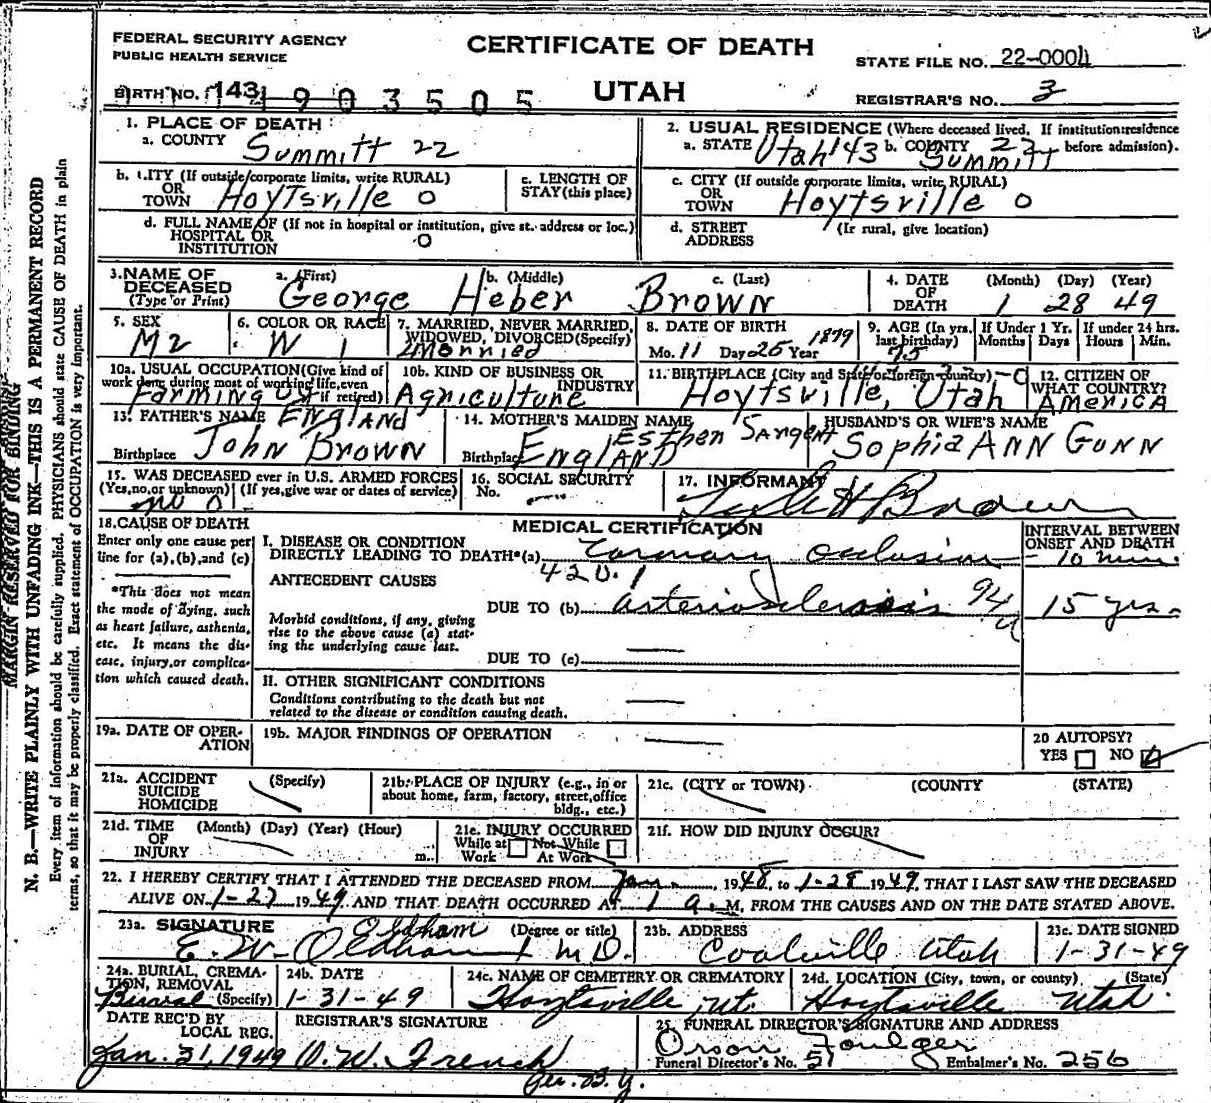 FEDERAL SECURITY AGENCY
PUBLIC HEALTH SERVICE
CERTIFICATE OF DEATH
UTAH
STATE FILE NO. 22-0004
REGISTRAR'S NO. 3
BIRTH NO. 143 1903505
1. PLACE OF DEATH
a. COUNTY Summitt 22
2. USUAL RESIDENCE (Where deceased lived. If institution: residence before admission).
a. STATE Utah 43 b. COUNTY 22 Summitt
b. CITY (If outside corporate limits, write RURAL)
OR TOWN Hoytsville 0
c. LENGTH OF STAY (this place)
c. CITY (If outside corporate limits, write RURAL)
OR TOWN Hoytsville 0
d. FULL NAME OF (If not in hospital or institution, give st. address or loc.)
HOSPITAL OR INSTITUTION 0
d. STREET ADDRESS (If rural, give location)
3. NAME OF DECEASED (Type or Print)
a. (First) George
b. (Middle) Heber
c. (Last) Brown
4. DATE OF DEATH (Month) (Day) (Year)
1 28 49
5. SEX
M 2
6. COLOR OR RACE
W 1
7. MARRIED, NEVER MARRIED, WIDOWED, DIVORCED (Specify)
2 Married
8. DATE OF BIRTH
Mo. 11 Day 25 Year 1879
9. AGE (In yrs. last birthday)
75
If Under 1 Yr. Months Days
If under 24 hrs. Hours Min.
10a. USUAL OCCUPATION (Give kind of work done during most of working life, even if retired)
Farming
10b. KIND OF BUSINESS OR INDUSTRY
Agriculture
11. BIRTHPLACE (City and State or foreign country)
Hoytsville, Utah
12. CITIZEN OF WHAT COUNTRY?
America
13. FATHER'S NAME
John Brown
Birthplace England
14. MOTHER'S MAIDEN NAME
Esther Sargent
Birthplace England
HUSBAND'S OR WIFE'S NAME
Sophia Ann Gunn
15. WAS DECEASED ever in U.S. ARMED FORCES
(Yes, no, or unknown) (If yes, give war or dates of service)
no 0
16. SOCIAL SECURITY No.
17. INFORMANT
H Brown
18. CAUSE OF DEATH
Enter only one cause per line for (a), (b), and (c)
*This does not mean the mode of dying, such as heart failure, asthenia, etc. It means the disease, injury, or complication which caused death.
MEDICAL CERTIFICATION
INTERVAL BETWEEN ONSET AND DEATH
I. DISEASE OR CONDITION DIRECTLY LEADING TO DEATH* (a) Coronary Occlusion 10 min.
420.1
ANTECEDENT CAUSES
DUE TO (b) arteriosclerosis 94a 15 yrs.
Morbid conditions, if any, giving rise to the above cause (a) stating the underlying cause last.
DUE TO (c)
II. OTHER SIGNIFICANT CONDITIONS
Conditions contributing to the death but not related to the disease or condition causing death.
19a. DATE OF OPERATION
19b. MAJOR FINDINGS OF OPERATION
20 AUTOPSY?
YES NO
21a. ACCIDENT SUICIDE HOMICIDE (Specify)
21b. PLACE OF INJURY (e.g., in or about home, farm, factory, street, office bldg., etc.)
21c. (CITY or TOWN) (COUNTY) (STATE)
21d. TIME OF INJURY (Month) (Day) (Year) (Hour) m.
21e. INJURY OCCURRED
While at Work Not While At Work
21f. HOW DID INJURY OCCUR?
22. I HEREBY CERTIFY THAT I ATTENDED THE DECEASED FROM Jan. , 1948 to 1-28 1949 THAT I LAST SAW THE DECEASED
ALIVE ON 1-27 1949 AND THAT DEATH OCCURRED AT 1 a. M, FROM THE CAUSES AND ON THE DATE STATED ABOVE.
23a. SIGNATURE (Degree or title)
Oldham
E. W. Oldham M D.
23b. ADDRESS
Coalville Utah
23c. DATE SIGNED
1-31-49
24a. BURIAL, CREMATION, REMOVAL (Specify)
Burial
24b. DATE
1-31-49
24c. NAME OF CEMETERY OR CREMATORY
Hoytsville, Ut.
24d. LOCATION (City, town, or county) (State)
Hoytsville Utah.
DATE REC'D BY LOCAL REG.
Jan. 31, 1949
REGISTRAR'S SIGNATURE
O. W. French
25. FUNERAL DIRECTOR'S SIGNATURE AND ADDRESS
Orson Foulger
Funeral Director's No. 51 Embalmer's No. 256
MARGIN RESERVED FOR BINDING
N. B.—WRITE PLAINLY WITH UNFADING INK—THIS IS A PERMANENT RECORD
Every item of information should be carefully supplied. PHYSICIANS should state CAUSE OF DEATH in plain
terms, so that it may be properly classified. Exact statement of OCCUPATION is very important.